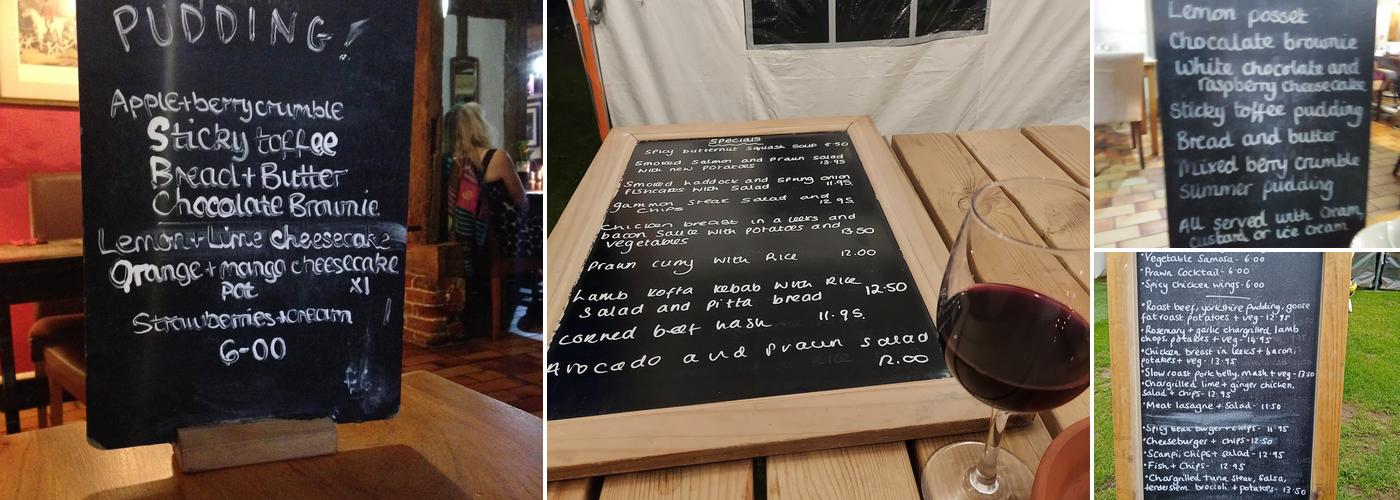 PUDDING!
Apple+berry crumble
Sticky toffee
Bread+Butter
Chocolate Brownie
Lemon+Lime cheesecake
Orange+mango cheesecake
Pot x1
Strawberries+cream
6-00
SPECIALS
Spicy butternut squash soup 5.50
Smoked Salmon and Prawn salad
with new Potatoes 13.95
Smoked haddock and spring onion
fishcakes with Salad 11.95
gammon Steak Salad and
chips 12.95
Chicken breast in a leeks and
bacon Sauce with Potatoes and
vegetables 13.50
Prawn curry with Rice 12.00
Lamb Kofta Kebab with Rice
Salad and Pitta bread 12.50
corned beef hash 11.95
Avocado and prawn salad
12.00
Lemon posset
Chocolate brownie
White chocolate and
raspberry cheesecake
Sticky toffee pudding
Bread and butter
Mixed berry crumble
Summer pudding
All served with cream,
custard or ice cream
Vegetable Samosa - 6:00
Prawn Cocktail - 6:00
Spicy Chicken wings - 6:00
Roast beef, yorkshire pudding, goose
fat roast potatoes + veg - 12.95
Rosemary + garlic chargrilled lamb
chops, potatoes + veg - 14.95
Chicken breast in leeks + bacon,
potatoes + veg - 13.95
Slow roast pork belly, mash + veg - 13.50
Chargrilled lime + ginger chicken,
salad + chips - 12.95
Meat lasagne + Salad - 11.50
Spicy bean burger + chips - 11.95
Cheeseburger + chips - 12.50
Scampi, chips + salad - 12.95
Fish + Chips - 12.95
Chargrilled tuna steak, salsa,
tenderstem brocoli + potatoes - 13.50